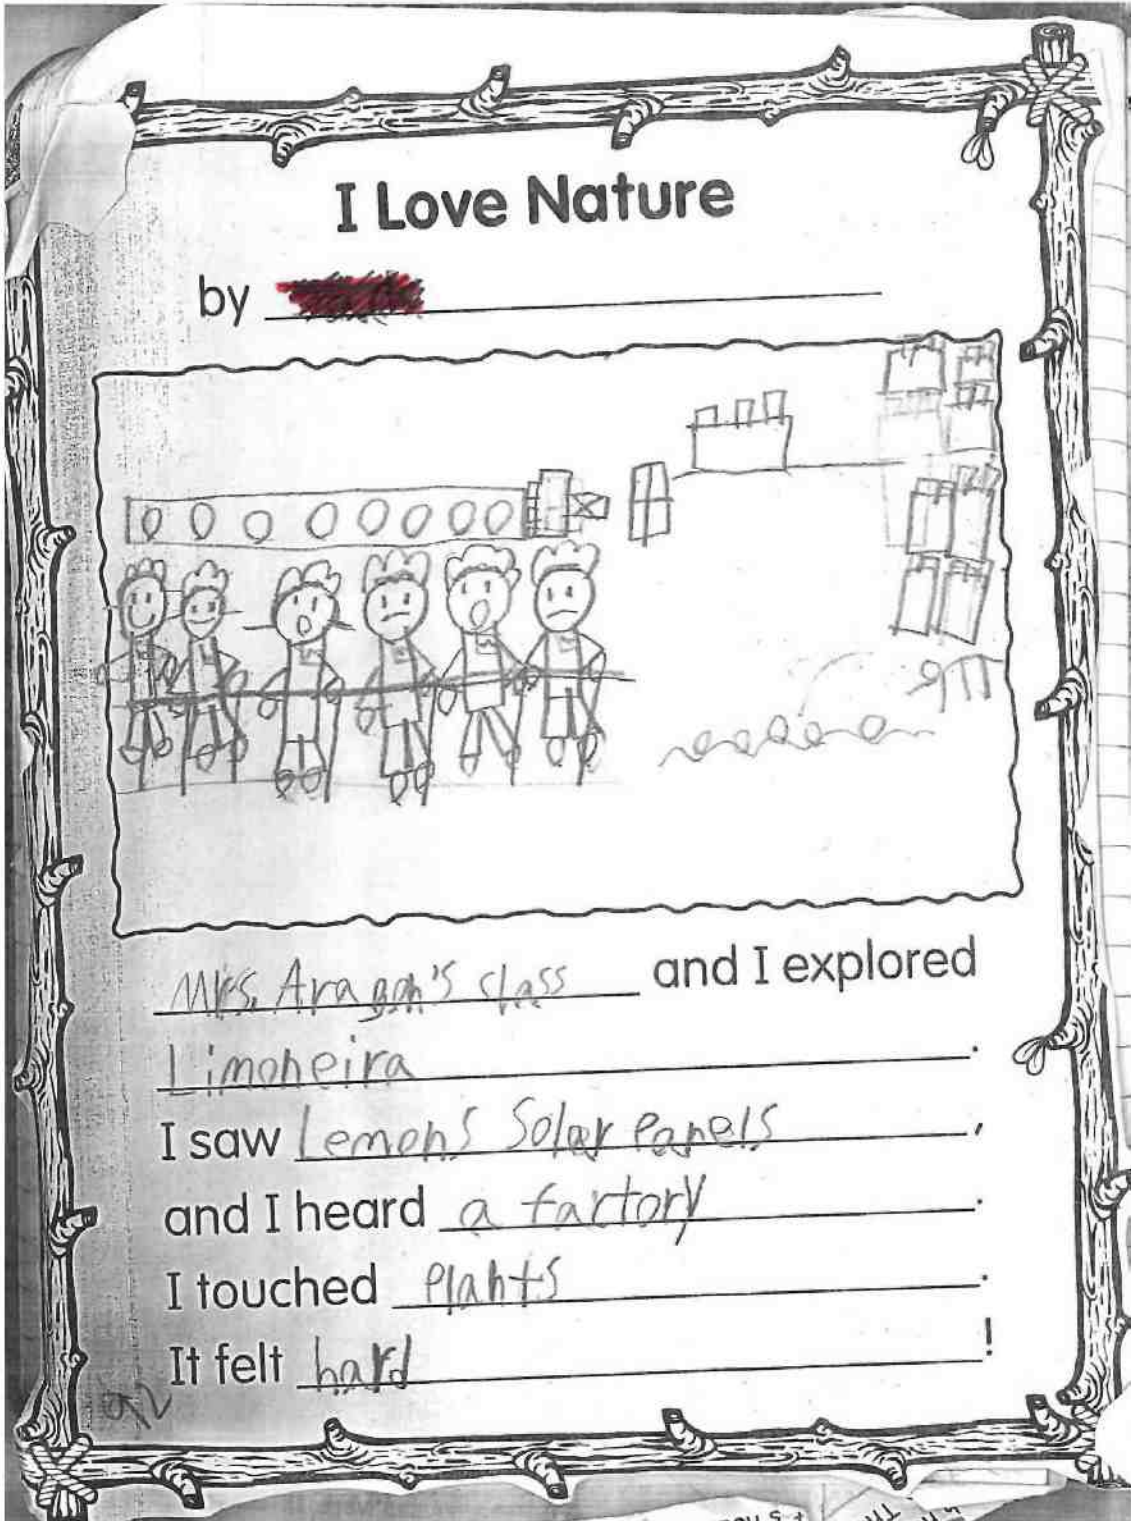 I Love Nature
by
Mrs. Aragon's class and I explored
Limoneira.
I saw Lemons Solar Panels,
and I heard a factory.
I touched Plants.
It felt hard!
92